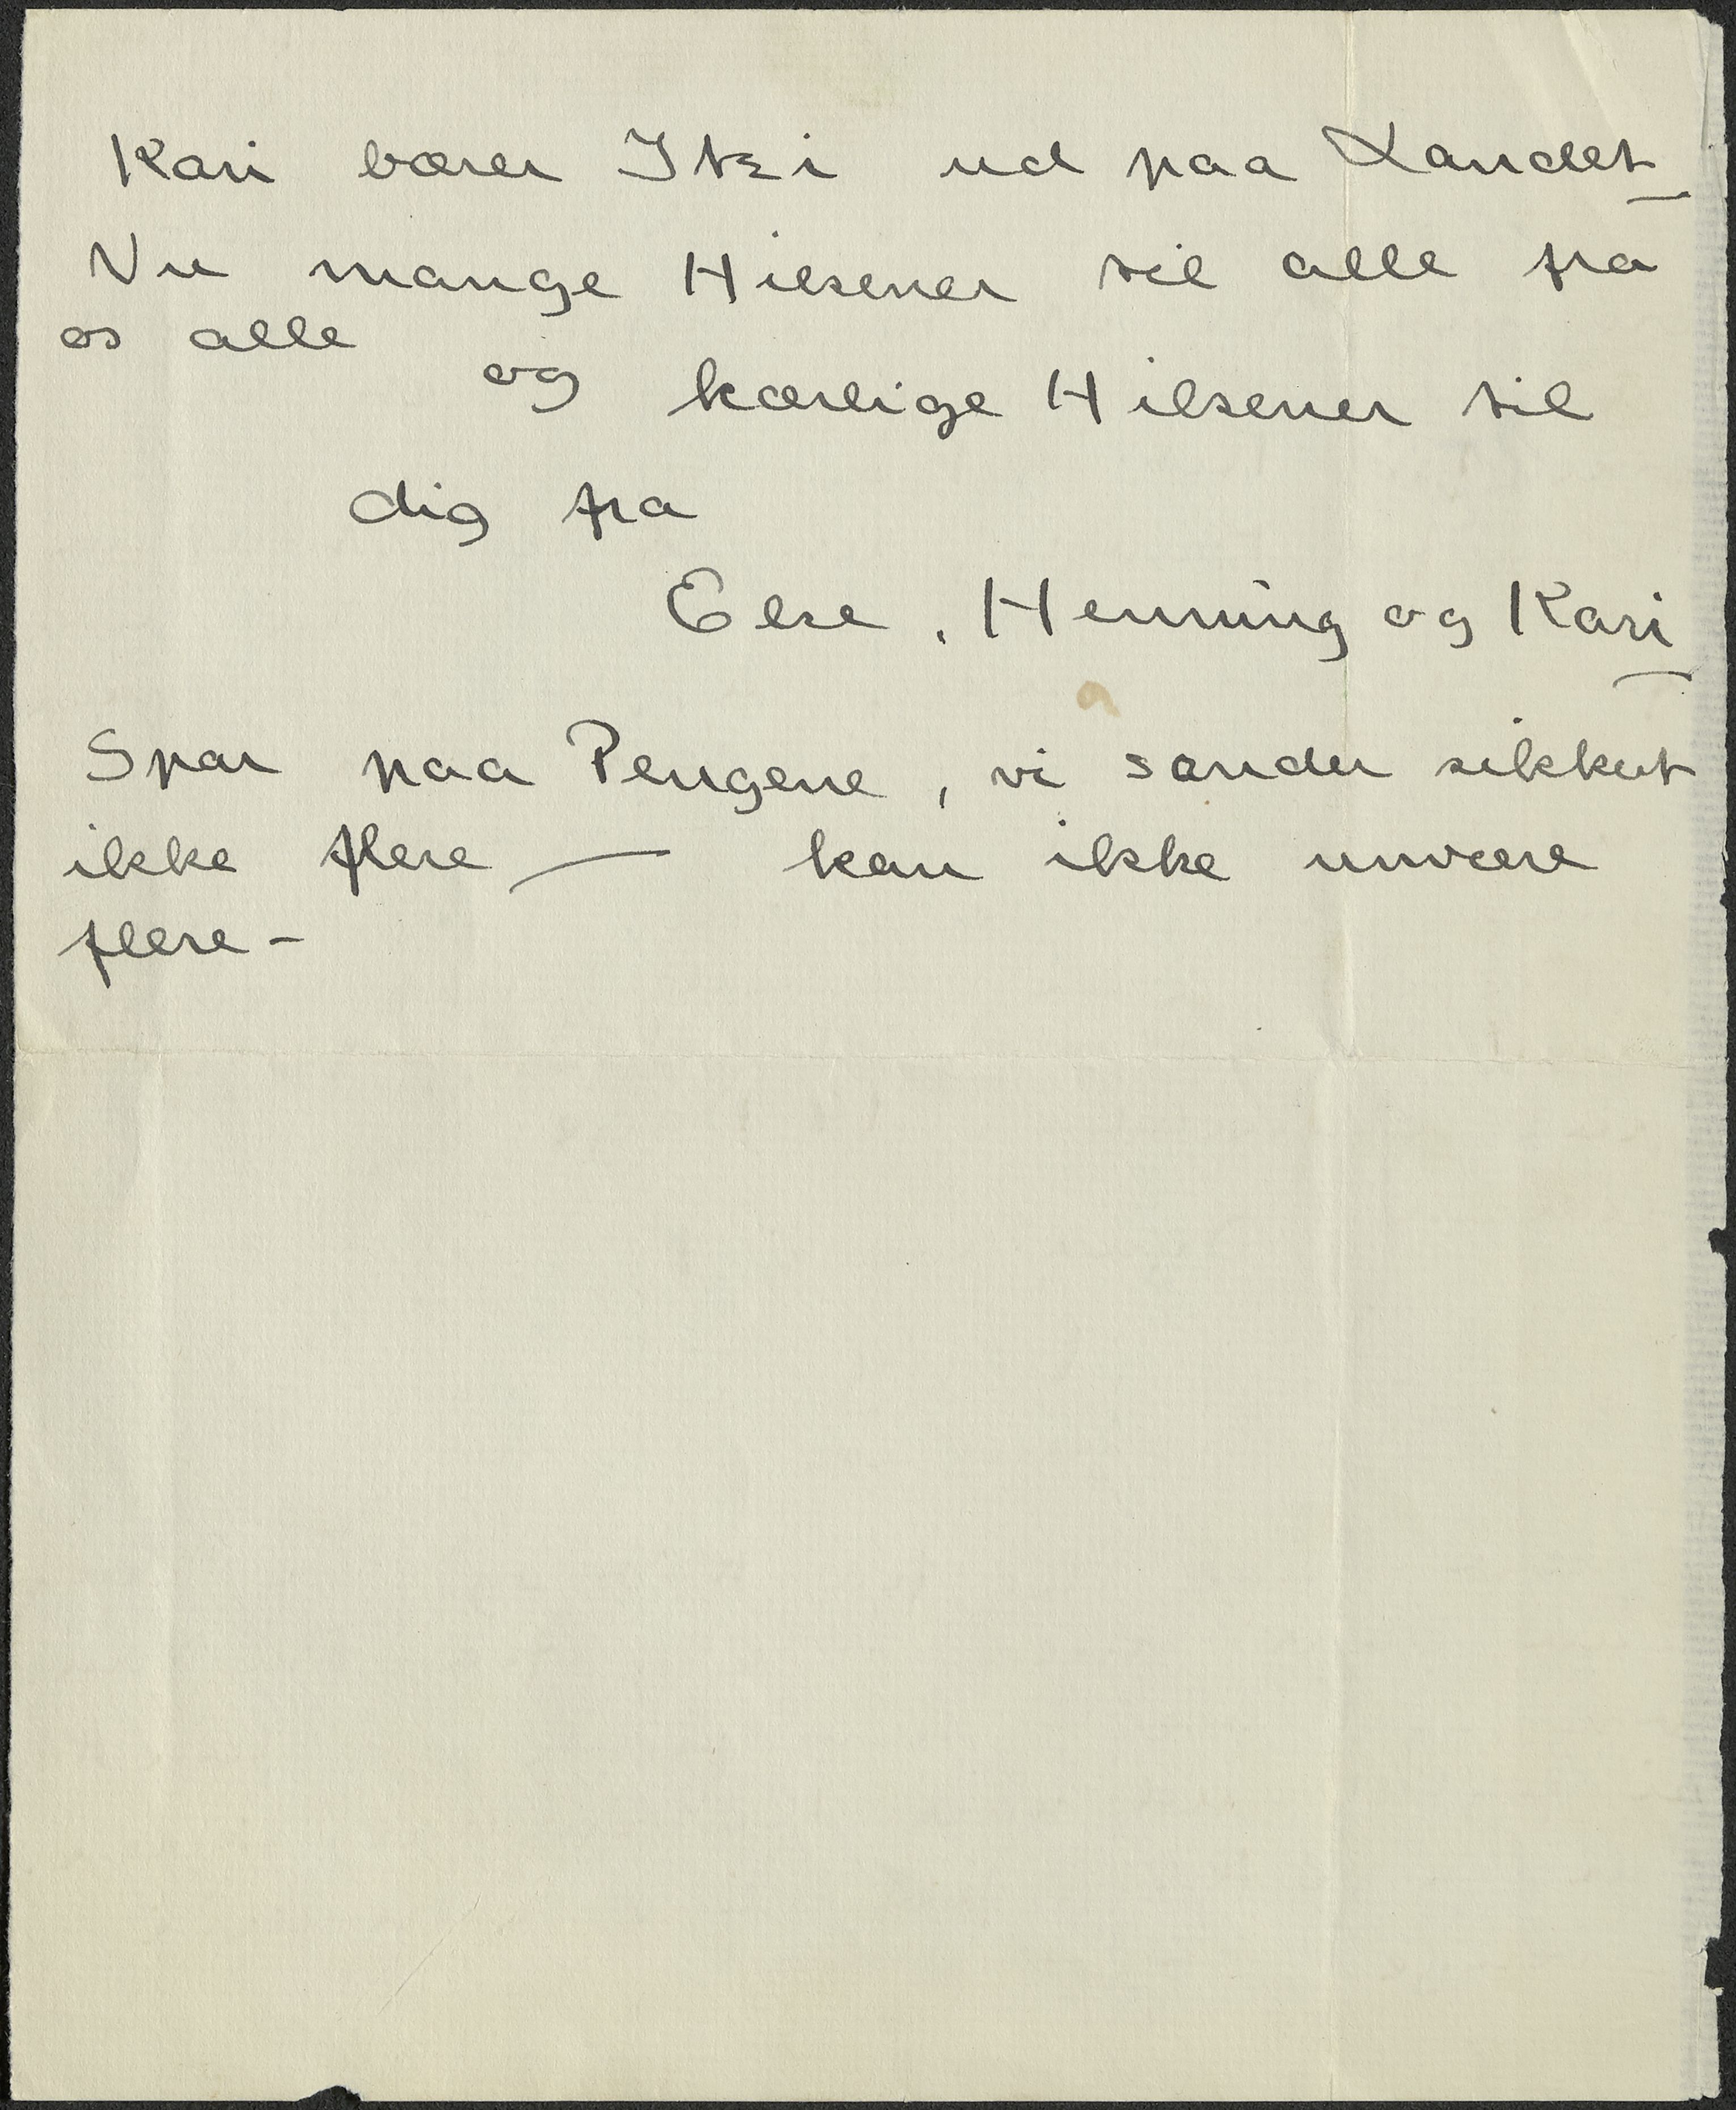 Kari bærer Itzi ud paa Landet
Nu mange Hilsener til alle fra
os alle
og kærlige Hilsener til
dig fra
Else, Henning og Kari
Spar paa Pengene, vi sender sikkert
ikke flere — kan ikke undvære
flere -